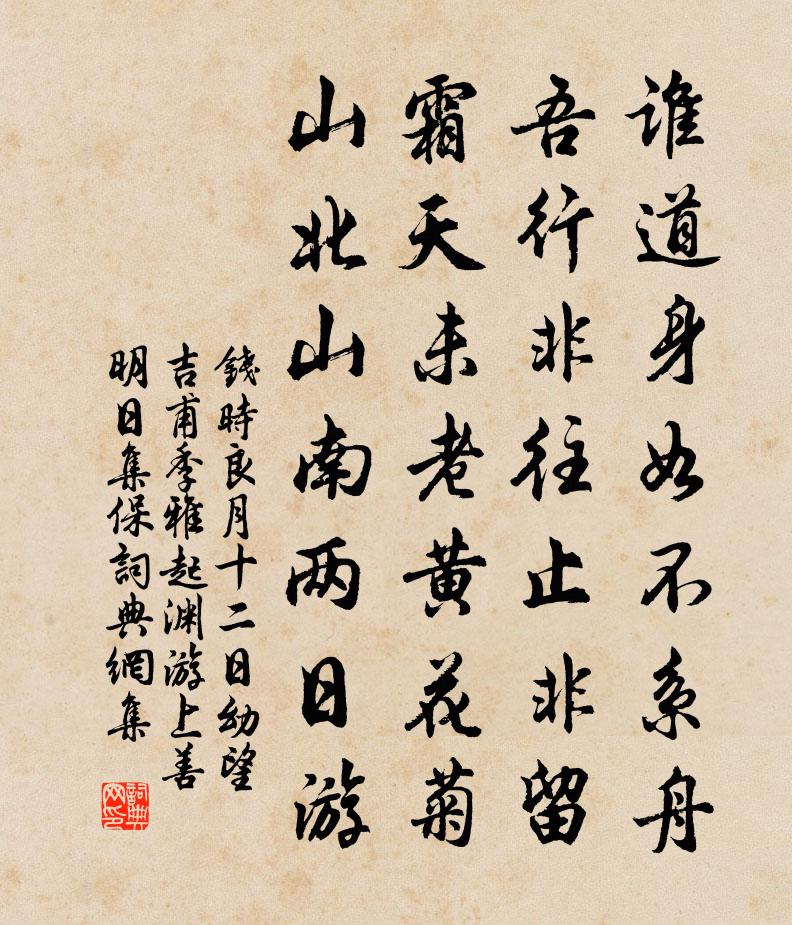 谁道身如不系舟
吾行非往止非留
霜天未老黄花菊
山北山南两日游
錢時良月十二日幼望
吉甫季雅起渊游上善
明日集保詞典網集
詞典
网印